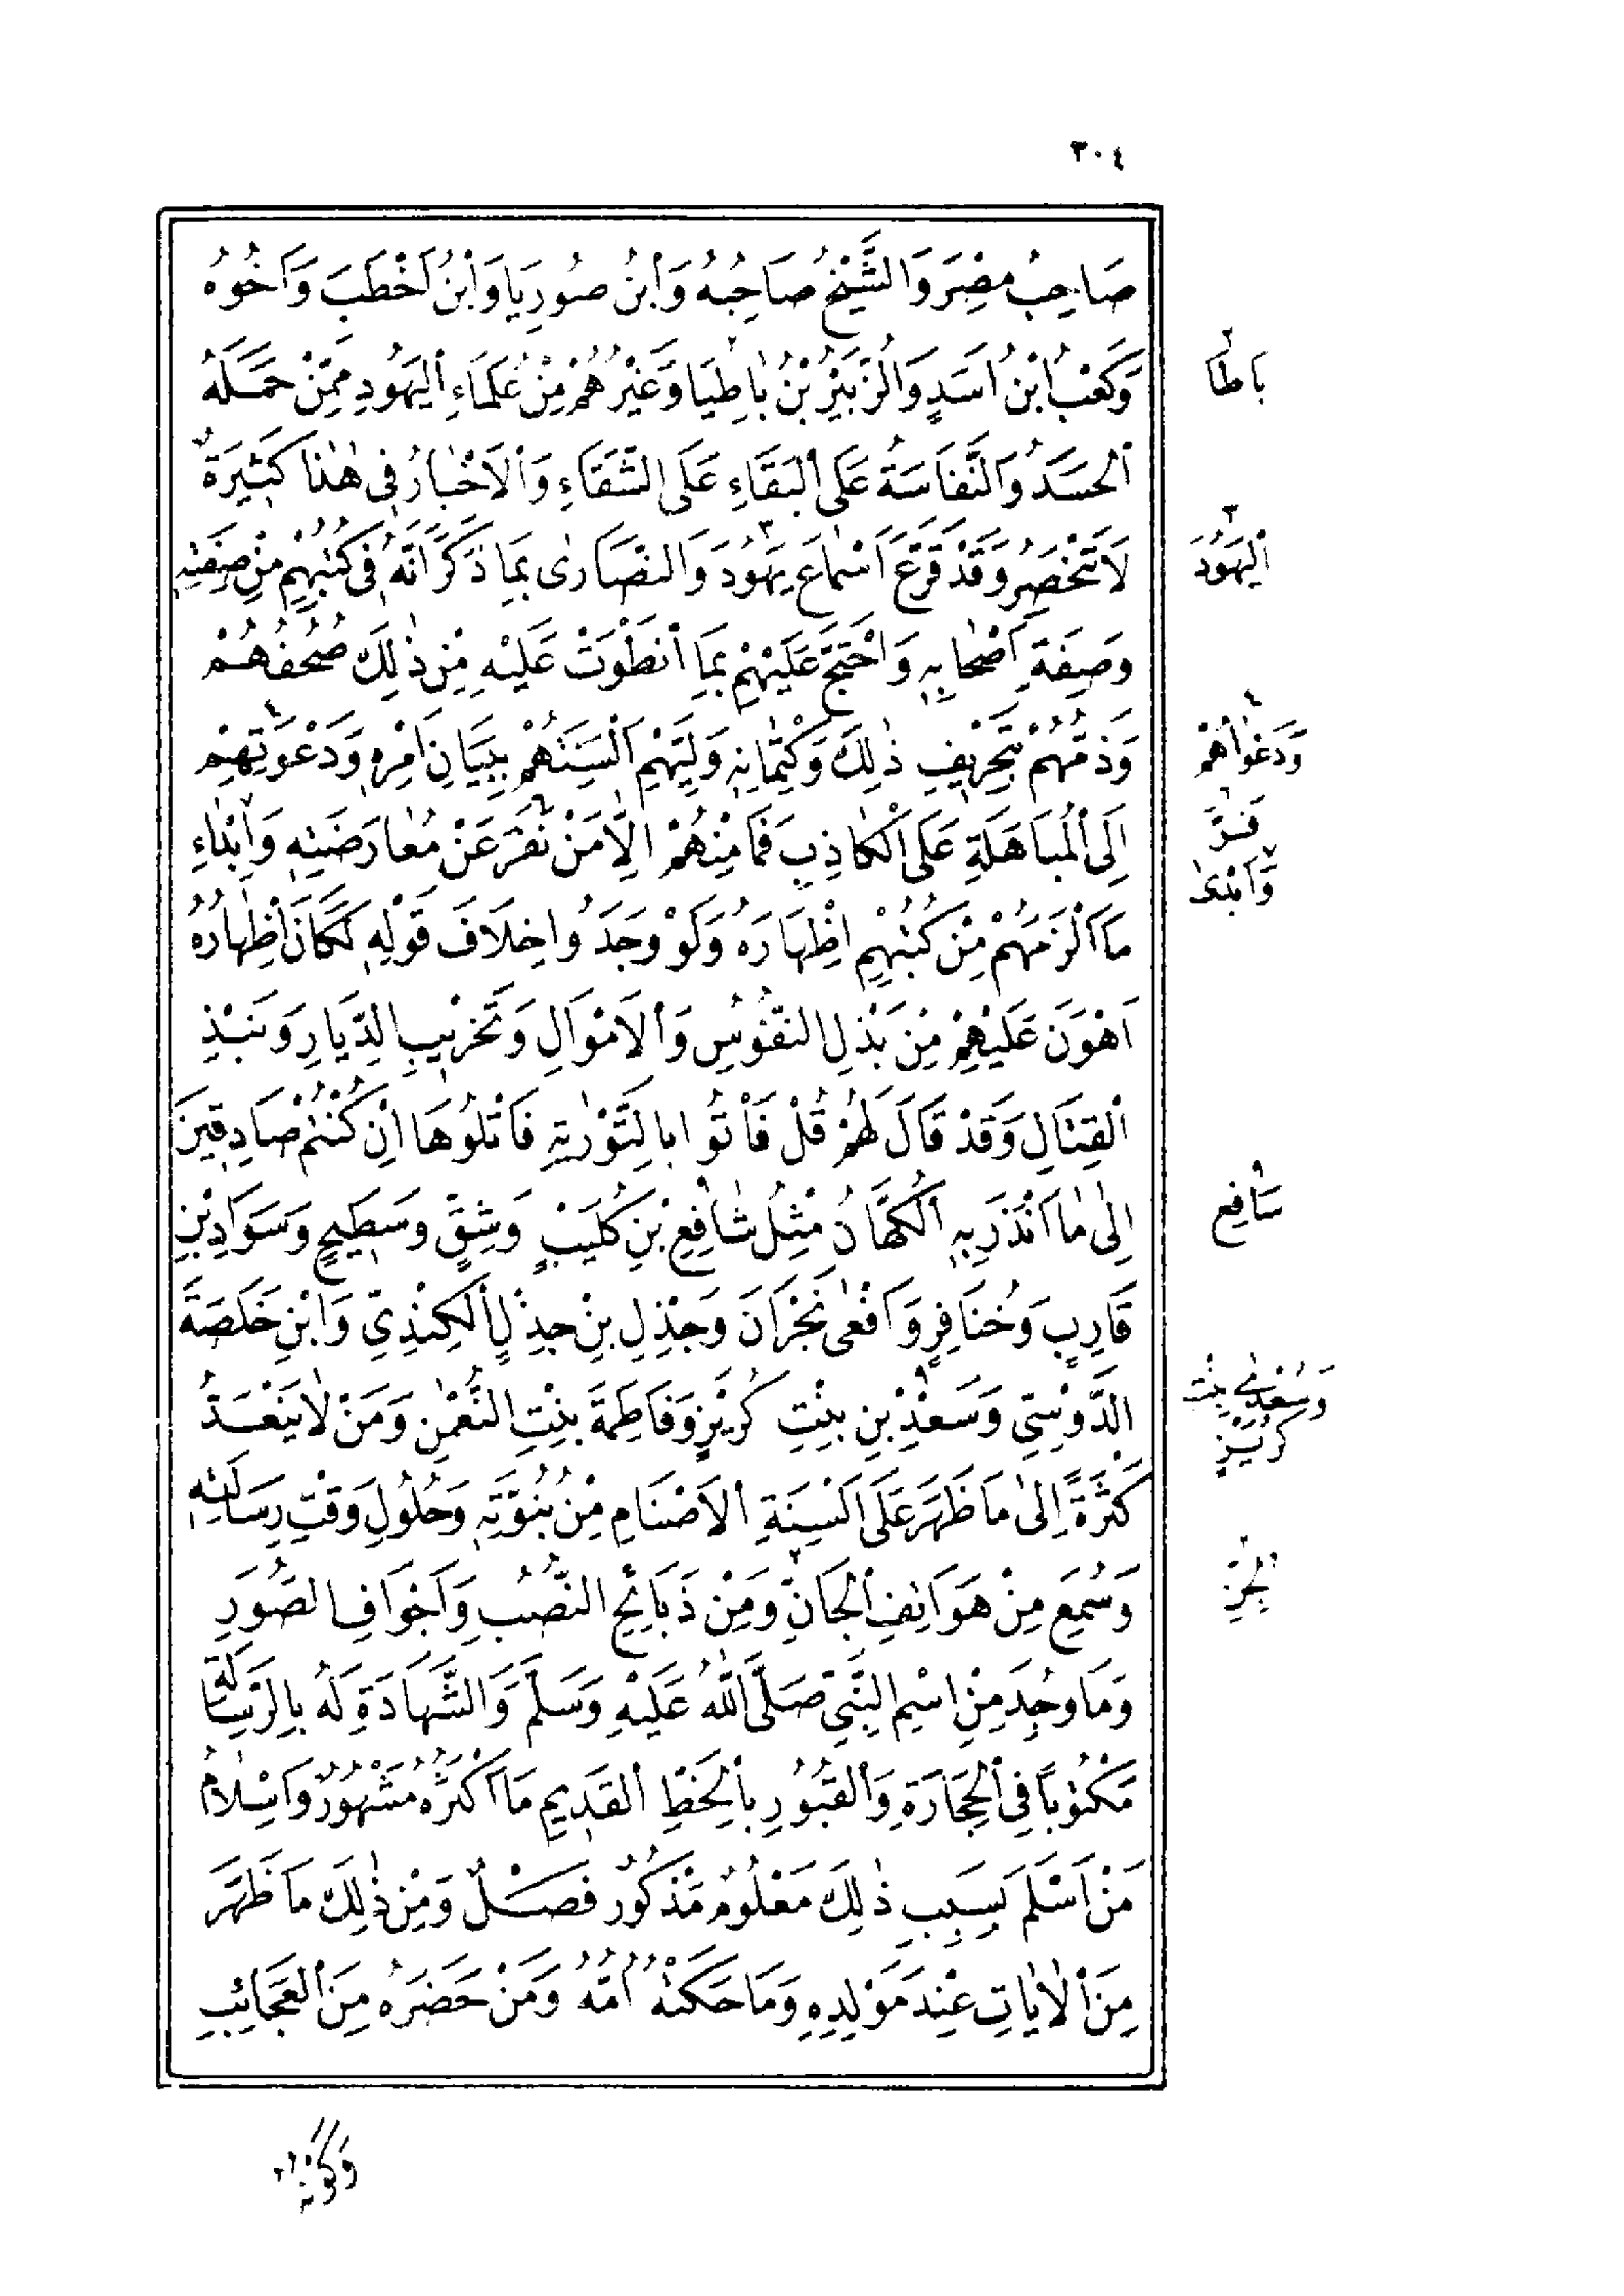 ٣٠٤
صَاحِبُ مِصْرَ وَالشَّيْخُ صَاحِبُهُ وَابْنُ صُورِيَا وَابْنُ اَخْطَبَ وَاَخُوهُ
وَكَعْبُ ابْنُ اَسَدٍ وَالزُّبَيْرُ بْنُ بَاطِيَا وَغَيْرُهُمْ مِنْ عُلَمَاءِ الْيَهُودِ مِمَّنْ حَمَلَهُ
الْحَسَدُ وَالنَّفَاسَةُ عَلَى الْبَقَاءِ عَلَى الشَّقَاءِ وَالْاَخْبَارُ فِى هٰذَا كَثِيرَةٌ
لَا تَنْحَصِرُ وَقَدْ قَرَعَ اَسْمَاعَ يَهُودَ وَالنَّصَارٰى بِمَا ذَكَرَ اَنَّهُ فِى كُتُبِهِمْ مِنْ صِفَتِهِ
وَصِفَةِ اَصْحَابِهِ وَاحْتَجَّ عَلَيْهِمْ بِمَا انْطَوَتْ عَلَيْهِ مِنْ ذٰلِكَ صُحُفُهُمْ
وَذَمَّهُمْ بِتَحْرِيفِ ذٰلِكَ وَكِتْمَانِهِ وَلَيِّهِمْ اَلْسِنَتَهُمْ بِبَيَانِ اَمْرِهِ وَدَعْوَتِهِمْ
اِلَى الْمُبَاهَلَةِ عَلَى الْكَاذِبِ فَمَا مِنْهُمْ اِلَّا مَنْ نَفَرَ عَنْ مُعَارَضَتِهِ وَاِبْدَاءِ
مَا اَلْزَمَهُمْ مِنْ كُتُبِهِمْ اِظْهَارَهُ وَلَوْ وَجَدُوا خِلَافَ قَوْلِهِ لَكَانَ اِظْهَارُهُ
اَهْوَنَ عَلَيْهِمْ مِنْ بَذْلِ النُّفُوسِ وَالْاَمْوَالِ وَتَخْرِيبِ الدِّيَارِ وَنَبْذِ
الْقِتَالِ وَقَدْ قَالَ لَهُمْ قُلْ فَأْتُوا بِالتَّوْرٰيةِ فَاتْلُوهَا اِنْ كُنْتُمْ صَادِقِينَ
اِلٰى مَا اَنْذَرَ بِهِ الْكُهَّانُ مِثْلُ شَافِعِ بْنِ كُلَيْبٍ وَشِقٍّ وَسَطِيحٍ وَسَوَادِ بْنِ
قَارِبٍ وَخُنَافِرٍ وَاَفْعٰى نَجْرَانَ وَجِذْلِ بْنِ جِذْلٍ الْكِنْدِيِّ وَابْنِ خَلَصَةَ
الدَّوْسِيِّ وَسَعْدِ بْنِ بِنْتِ كُرَيْزٍ وَفَاطِمَةَ بِنْتِ النُّعْمٰنِ وَمَنْ لَا يَنْعَدُّ
كَثْرَةً اِلٰى مَا ظَهَرَ عَلَى اَلْسِنَةِ الْاَصْنَامِ مِنْ نُبُوَّتِهِ وَحُلُولِ وَقْتِ رِسَالَتِهِ
وَسُمِعَ مِنْ هَوَاتِفِ الْجَانِّ وَمِنْ ذَبَائِحِ النُّصُبِ وَاَجْوَافِ الصُّوَرِ
وَمَا وُجِدَ مِنِ اسْمِ النَّبِىِّ صَلَّى اللّٰهُ عَلَيْهِ وَسَلَّمَ وَالشَّهَادَةِ لَهُ بِالرِّسَالَةِ
مَكْتُوبًا فِى الْحِجَارَةِ وَالْقُبُورِ بِالْخَطِّ الْقَدِيمِ مَا اَكْثَرُهُ مَشْهُورٌ وَاِسْلَامُ
مَنْ اَسْلَمَ بِسَبَبِ ذٰلِكَ مَعْلُومٌ مَذْكُورٌ فَصْلٌ وَمِنْ ذٰلِكَ مَا ظَهَرَ
مِنَ الْاٰيَاتِ عِنْدَ مَوْلِدِهِ وَمَا حَكَتْهُ اُمُّهُ وَمَنْ حَضَرَهُ مِنَ الْعَجَائِبِ
٢
بَاطَا
٣
الْيَهُودَ
٤
وَدَعْوَاهُمْ
فَرَّ
وَاَبْدٰى
سَافِعِ
وَسُعْدٰى بِنْتِ
كُرَيْزٍ
الْجِنِّ
وَكَوْنُهُ